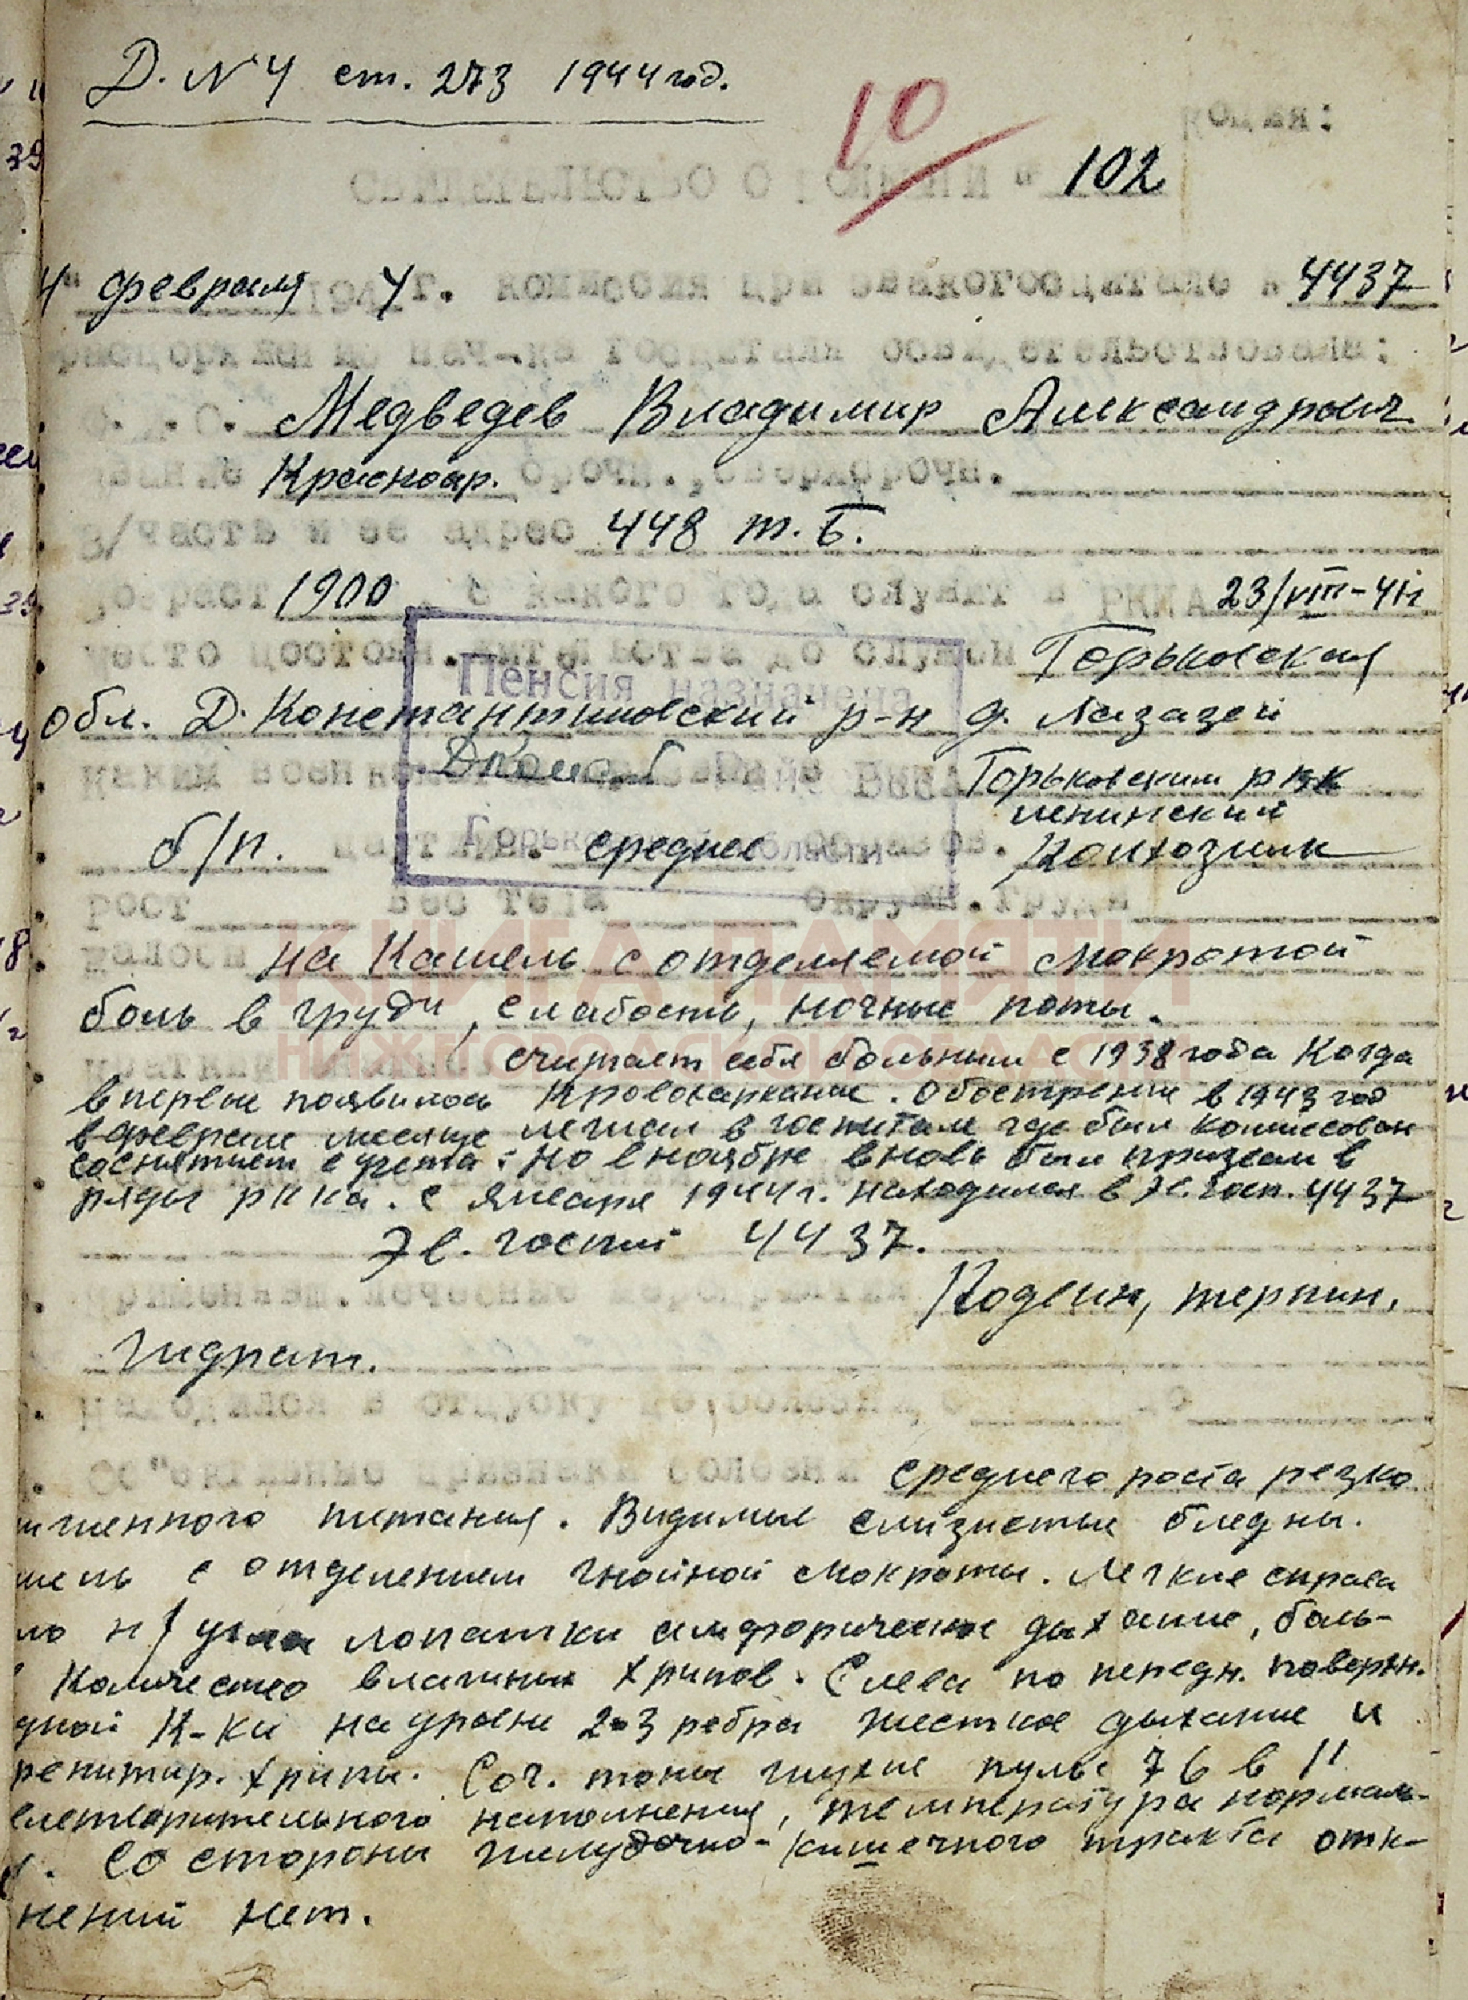 Д. №4 ст. 273 1944 год.
10
Копия:
СВИДЕТЕЛЬСТВО О БОЛЕЗНИ № 102
4" февраля 1944 г. комиссия при эвакогоспитале № 4437
распоряжению нач-ка госпиталя освидетельствовала:
Ф.И.О. Медведев Владимир Александрович
Звание Красноар. срочн., сверхсрочн.
В/часть и ее адрес 448 т. Б.
Возраст 1900, с какого года служит в РККА 23/VIII-41г
Место постоян. жительства до службы Горьковская
обл. Д. Константиновский р-н д. Лазазей
Пенсия назначена
Каким военкоматом РККА Горьковским рвк
ленинский
Горьковской области
б/п. партийн. среднее образов. колхозник
рост вес тела окружн. груди
Жалобы на кашель с отделяемой мокротой
КНИГА ПАМЯТИ
боль в груди, слабость, ночные поты.
НИЖЕГОРОДСКОЙ ОБЛАСТИ
считает себя больным с 1938 года когда
впервые появилось кровохаркание. Обострение в 1943 год
в феврале месяце лежал в госпитале где был комиссован
со снятием с учета. Но в ноябре вновь был призван в
ряды ркка. с января 1944 г. находился в Эв. госп. 4437
Эв. госпит 4437.
Применявш. лечебные мероприятия Кодеин, терпин,
гидрат.
Находился в отпуску по болезни с до
Об"ективные признаки болезни среднего роста резко
питания. Видимые слизистые бледны.
с отделением гнойной мокроты. Легкие справа
н/угла лопатки амфорическое дыхание, боль-
количество влажных хрипов. Слева по передн. поверхн.
К-ки на уровне 2-3 ребра жесткое дыхание и
хрипы. Сер. тоны глухие пульс 76 в 1'
наполнения, температура нормаль-
Со стороны желудочно-кишечного тракта откло-
нений нет.